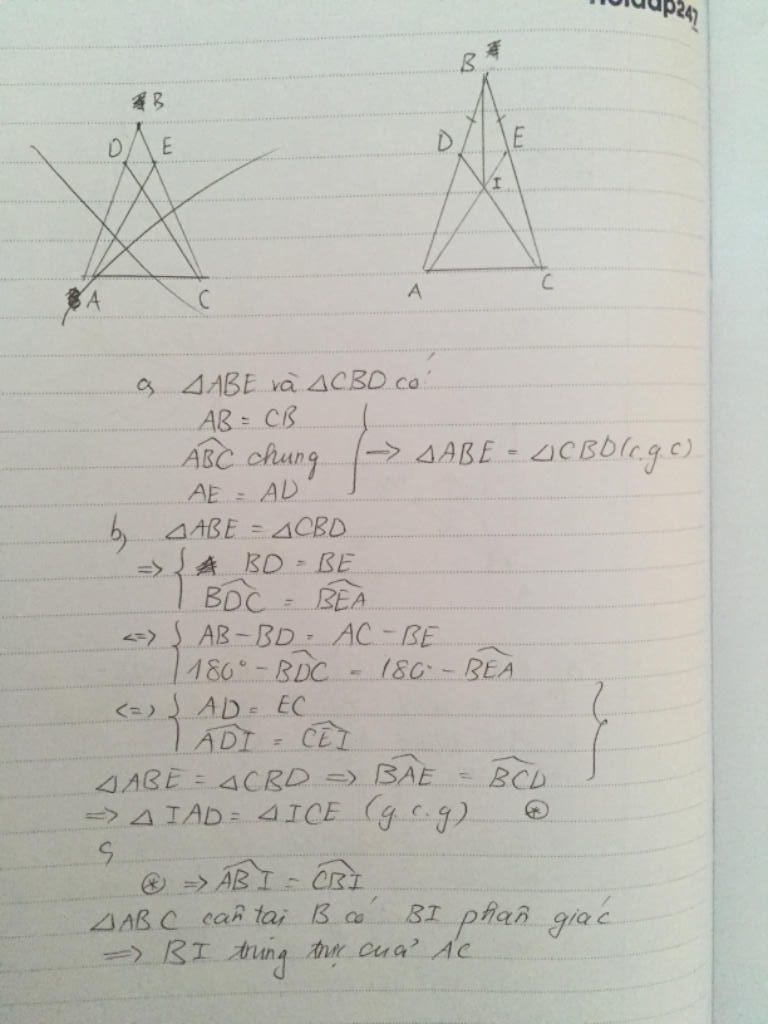 B
D E
A C
B
D E
I
A C
a, △ABE và △CBD có
AB = CB
ABC chung
AE = AD
→ △ABE = △CBD (c.g.c)
b, △ABE = △CBD
=> BD = BE
BDC = BEA
<=> AB - BD = AC - BE
180° - BDC = 180° - BEA
<=> AD = EC
ADI = CEI
△ABE = △CBD => BAE = BCD
=> △IAD = △ICE (g.c.g) ⊛
ς
⊛ => ABI = CBI
△ABC cân tại B có BI phân giác
=> BI trung trực của AC